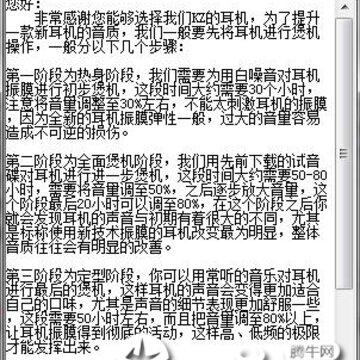 您好：
非常感谢您能够选择我们KZ的耳机，为了提升
一款新耳机的音质，我们一般要先将耳机进行煲机
操作，一般分以下几个步骤：
第一阶段为热身阶段，我们需要为用白噪音对耳机
振膜进行初步煲机，这段时间大约需要30个小时，
注意将音量调整至30%左右，不能太刺激耳机的振膜
，因为全新的耳机振膜弹性一般，过大的音量容易
造成不可逆的损伤。
第二阶段为全面煲机阶段，我们用先前下载的试音
碟对耳机进行进一步煲机，这段时间大约需要50-80
小时，需要将音量调至50%，之后逐步放大音量，这
个阶段最后20小时可以调至80%，在这个阶段之后你
就会发现耳机的声音与初期有着很大的不同，尤其
是标称使用新技术振膜的耳机改变最为明显，整体
音质往往会有明显的改善。
第三阶段为定型阶段，你可以用常听的音乐对耳机
进行最后的煲机，这样耳机的声音会变得更加适合
自己的口味，尤其是声音的细节表现更加舒服一些
，这段需要50小时左右，而且把音量调至80%以上，
让耳机振膜得到彻底的活动，这样高、低频的极限
才能发挥出来。
腾牛网